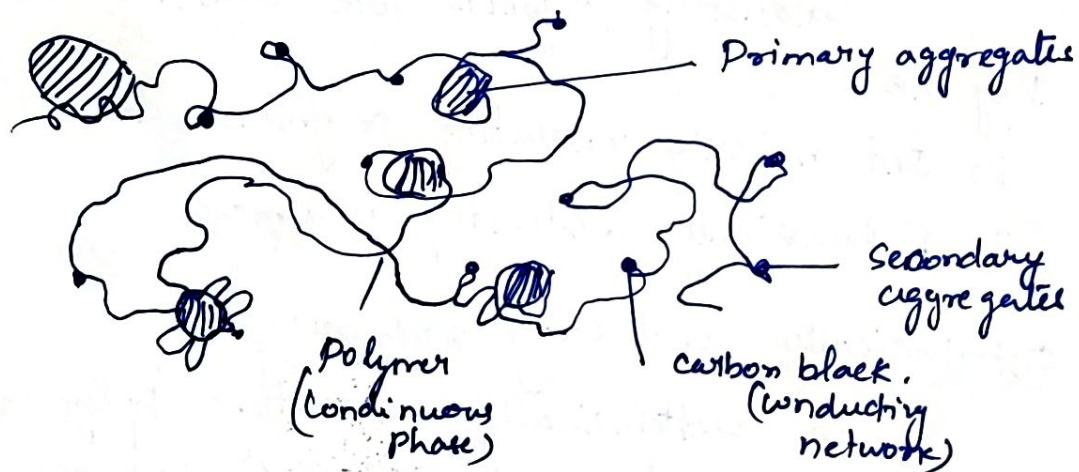 Primary aggregates
Secondary
aggregates
Polymer
(Condinuous
Phase)
Carbon black.
(Conducting
network)